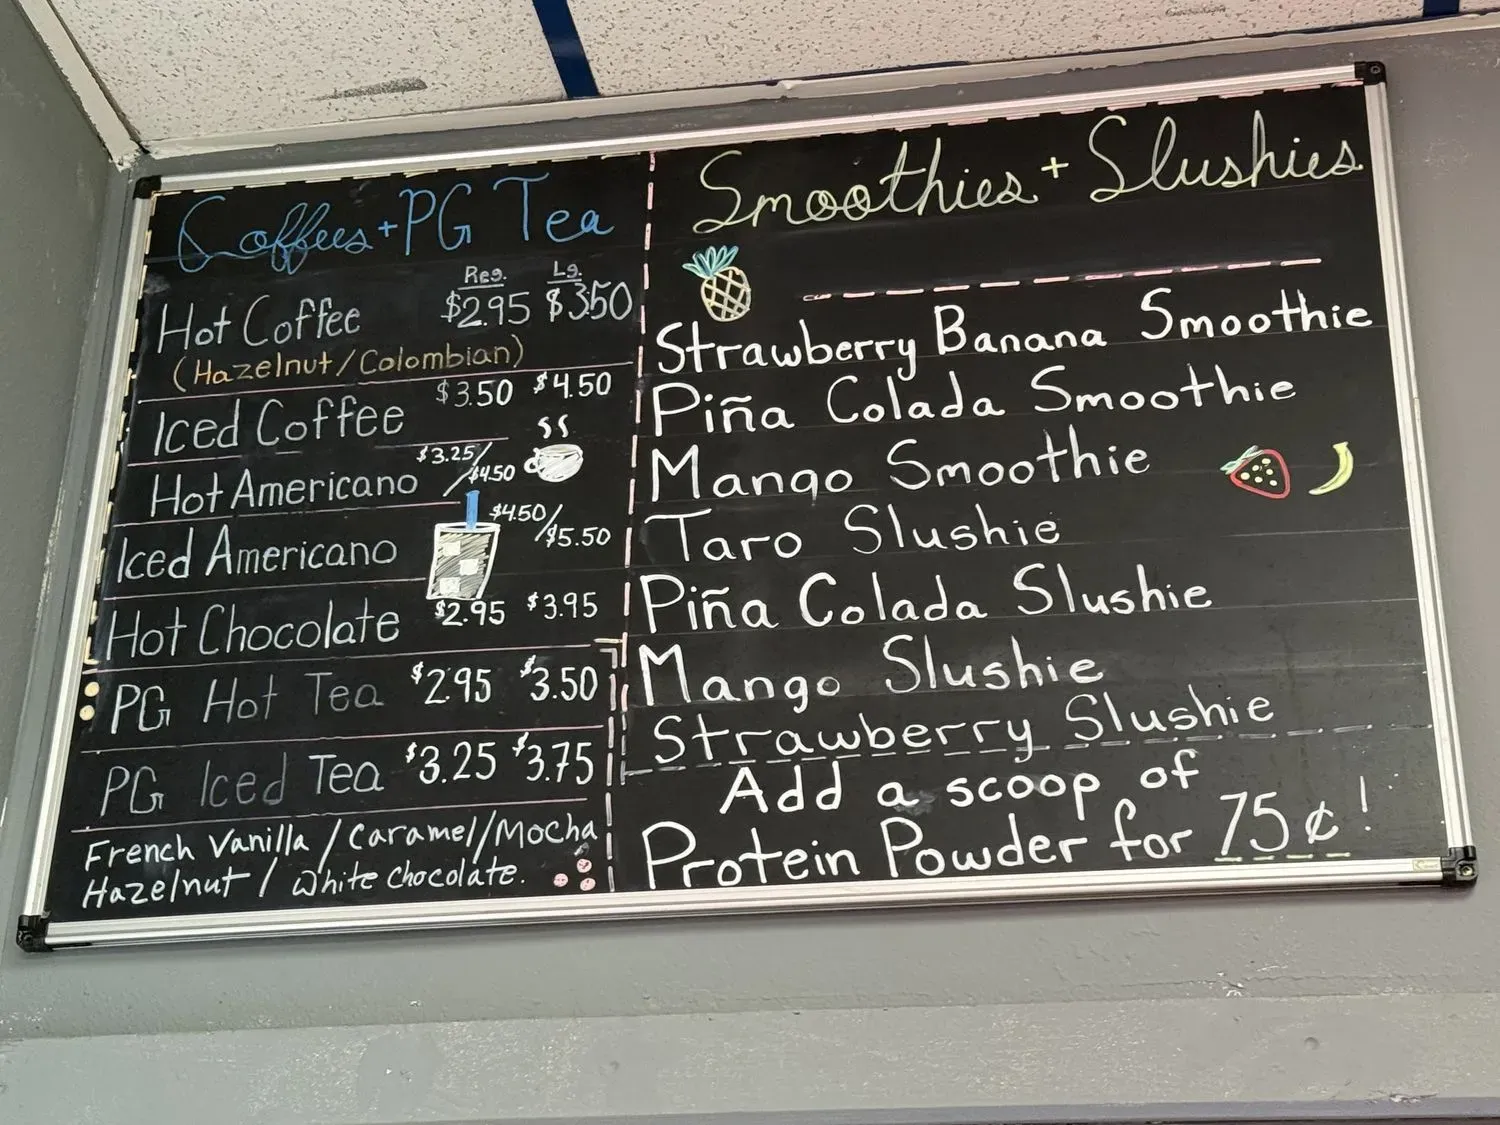 Coffees + PG Tea
Reg. Lg.
Hot Coffee $2.95 $3.50
(Hazelnut/Colombian)
Iced Coffee $3.50 $4.50
Hot Americano $3.25/$4.50
Iced Americano $4.50/$5.50
Hot Chocolate $2.95 $3.95
PG Hot Tea $2.95 $3.50
PG Iced Tea $3.25 $3.75
French Vanilla / Caramel / Mocha
Hazelnut / White Chocolate.
Smoothies + Slushies
Strawberry Banana Smoothie
Piña Colada Smoothie
Mango Smoothie
Taro Slushie
Piña Colada Slushie
Mango Slushie
Strawberry Slushie
Add a scoop of
Protein Powder for 75¢!